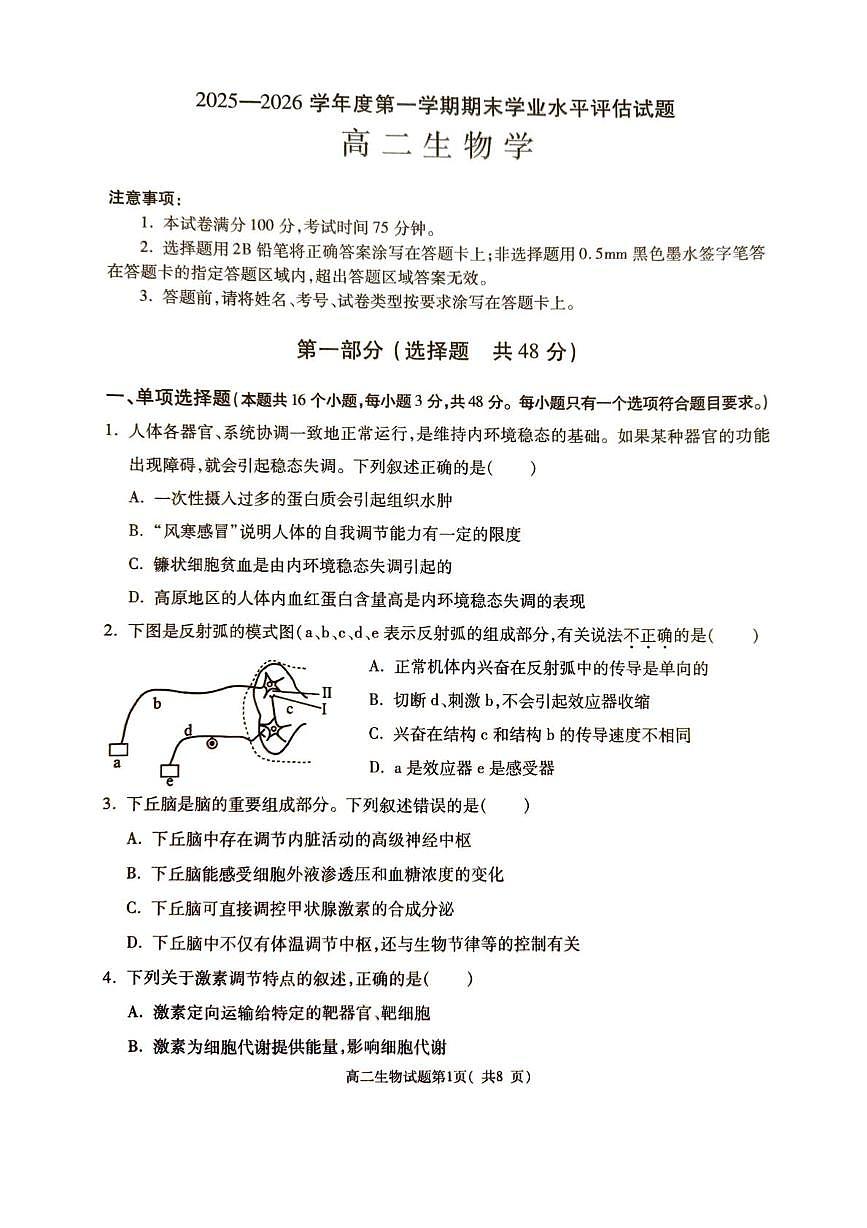 2025—2026 学年度第一学期期末学业水平评估试题
高二生物学
注意事项:
1. 本试卷满分 100 分,考试时间 75 分钟。
2. 选择题用 2B 铅笔将正确答案涂写在答题卡上;非选择题用 0.5mm 黑色墨水签字笔答
在答题卡的指定答题区域内,超出答题区域答案无效。
3. 答题前,请将姓名、考号、试卷类型按要求涂写在答题卡上。
第一部分(选择题 共 48 分)
一、单项选择题(本题共 16 个小题,每小题 3 分,共 48 分。每小题只有一个选项符合题目要求。)
1. 人体各器官、系统协调一致地正常运行,是维持内环境稳态的基础。如果某种器官的功能
出现障碍,就会引起稳态失调。下列叙述正确的是( )
A. 一次性摄入过多的蛋白质会引起组织水肿
B. “风寒感冒”说明人体的自我调节能力有一定的限度
C. 镰状细胞贫血是由内环境稳态失调引起的
D. 高原地区的人体内血红蛋白含量高是内环境稳态失调的表现
2. 下图是反射弧的模式图(a、b、c、d、e 表示反射弧的组成部分,有关说法不正确的是( )
A. 正常机体内兴奋在反射弧中的传导是单向的
B. 切断 d、刺激 b,不会引起效应器收缩
C. 兴奋在结构 c 和结构 b 的传导速度不相同
D. a 是效应器 e 是感受器
a
b
c
d
e
II
I
3. 下丘脑是脑的重要组成部分。下列叙述错误的是( )
A. 下丘脑中存在调节内脏活动的高级神经中枢
B. 下丘脑能感受细胞外液渗透压和血糖浓度的变化
C. 下丘脑可直接调控甲状腺激素的合成分泌
D. 下丘脑中不仅有体温调节中枢,还与生物节律等的控制有关
4. 下列关于激素调节特点的叙述,正确的是( )
A. 激素定向运输给特定的靶器官、靶细胞
B. 激素为细胞代谢提供能量,影响细胞代谢
高二生物试题第1页( 共8 页)